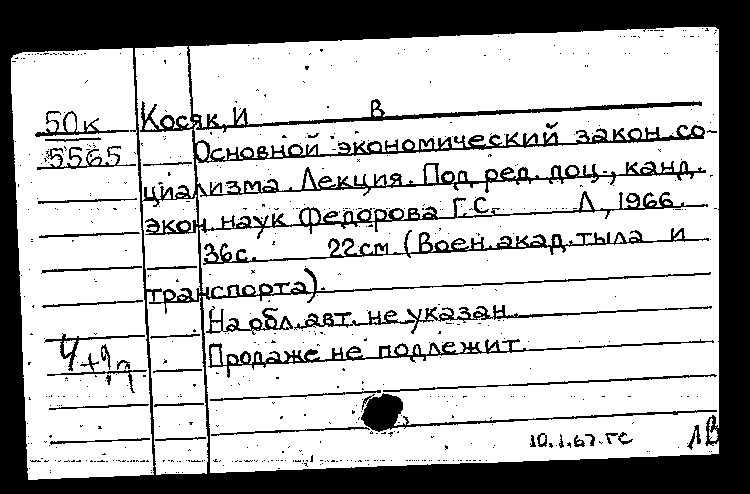 50к Косяк, И В
5565 Основной экономический закон со-
циализма. Лекция. Под ред. доц., канд.
экон. наук Федорова Г.С. Л., 1966.
36с. 22см. (Воен. акад. тыла и
транспорта).
На обл. авт. не указан.
Продаже не подлежит.
10.1.67. ГС ЛВ